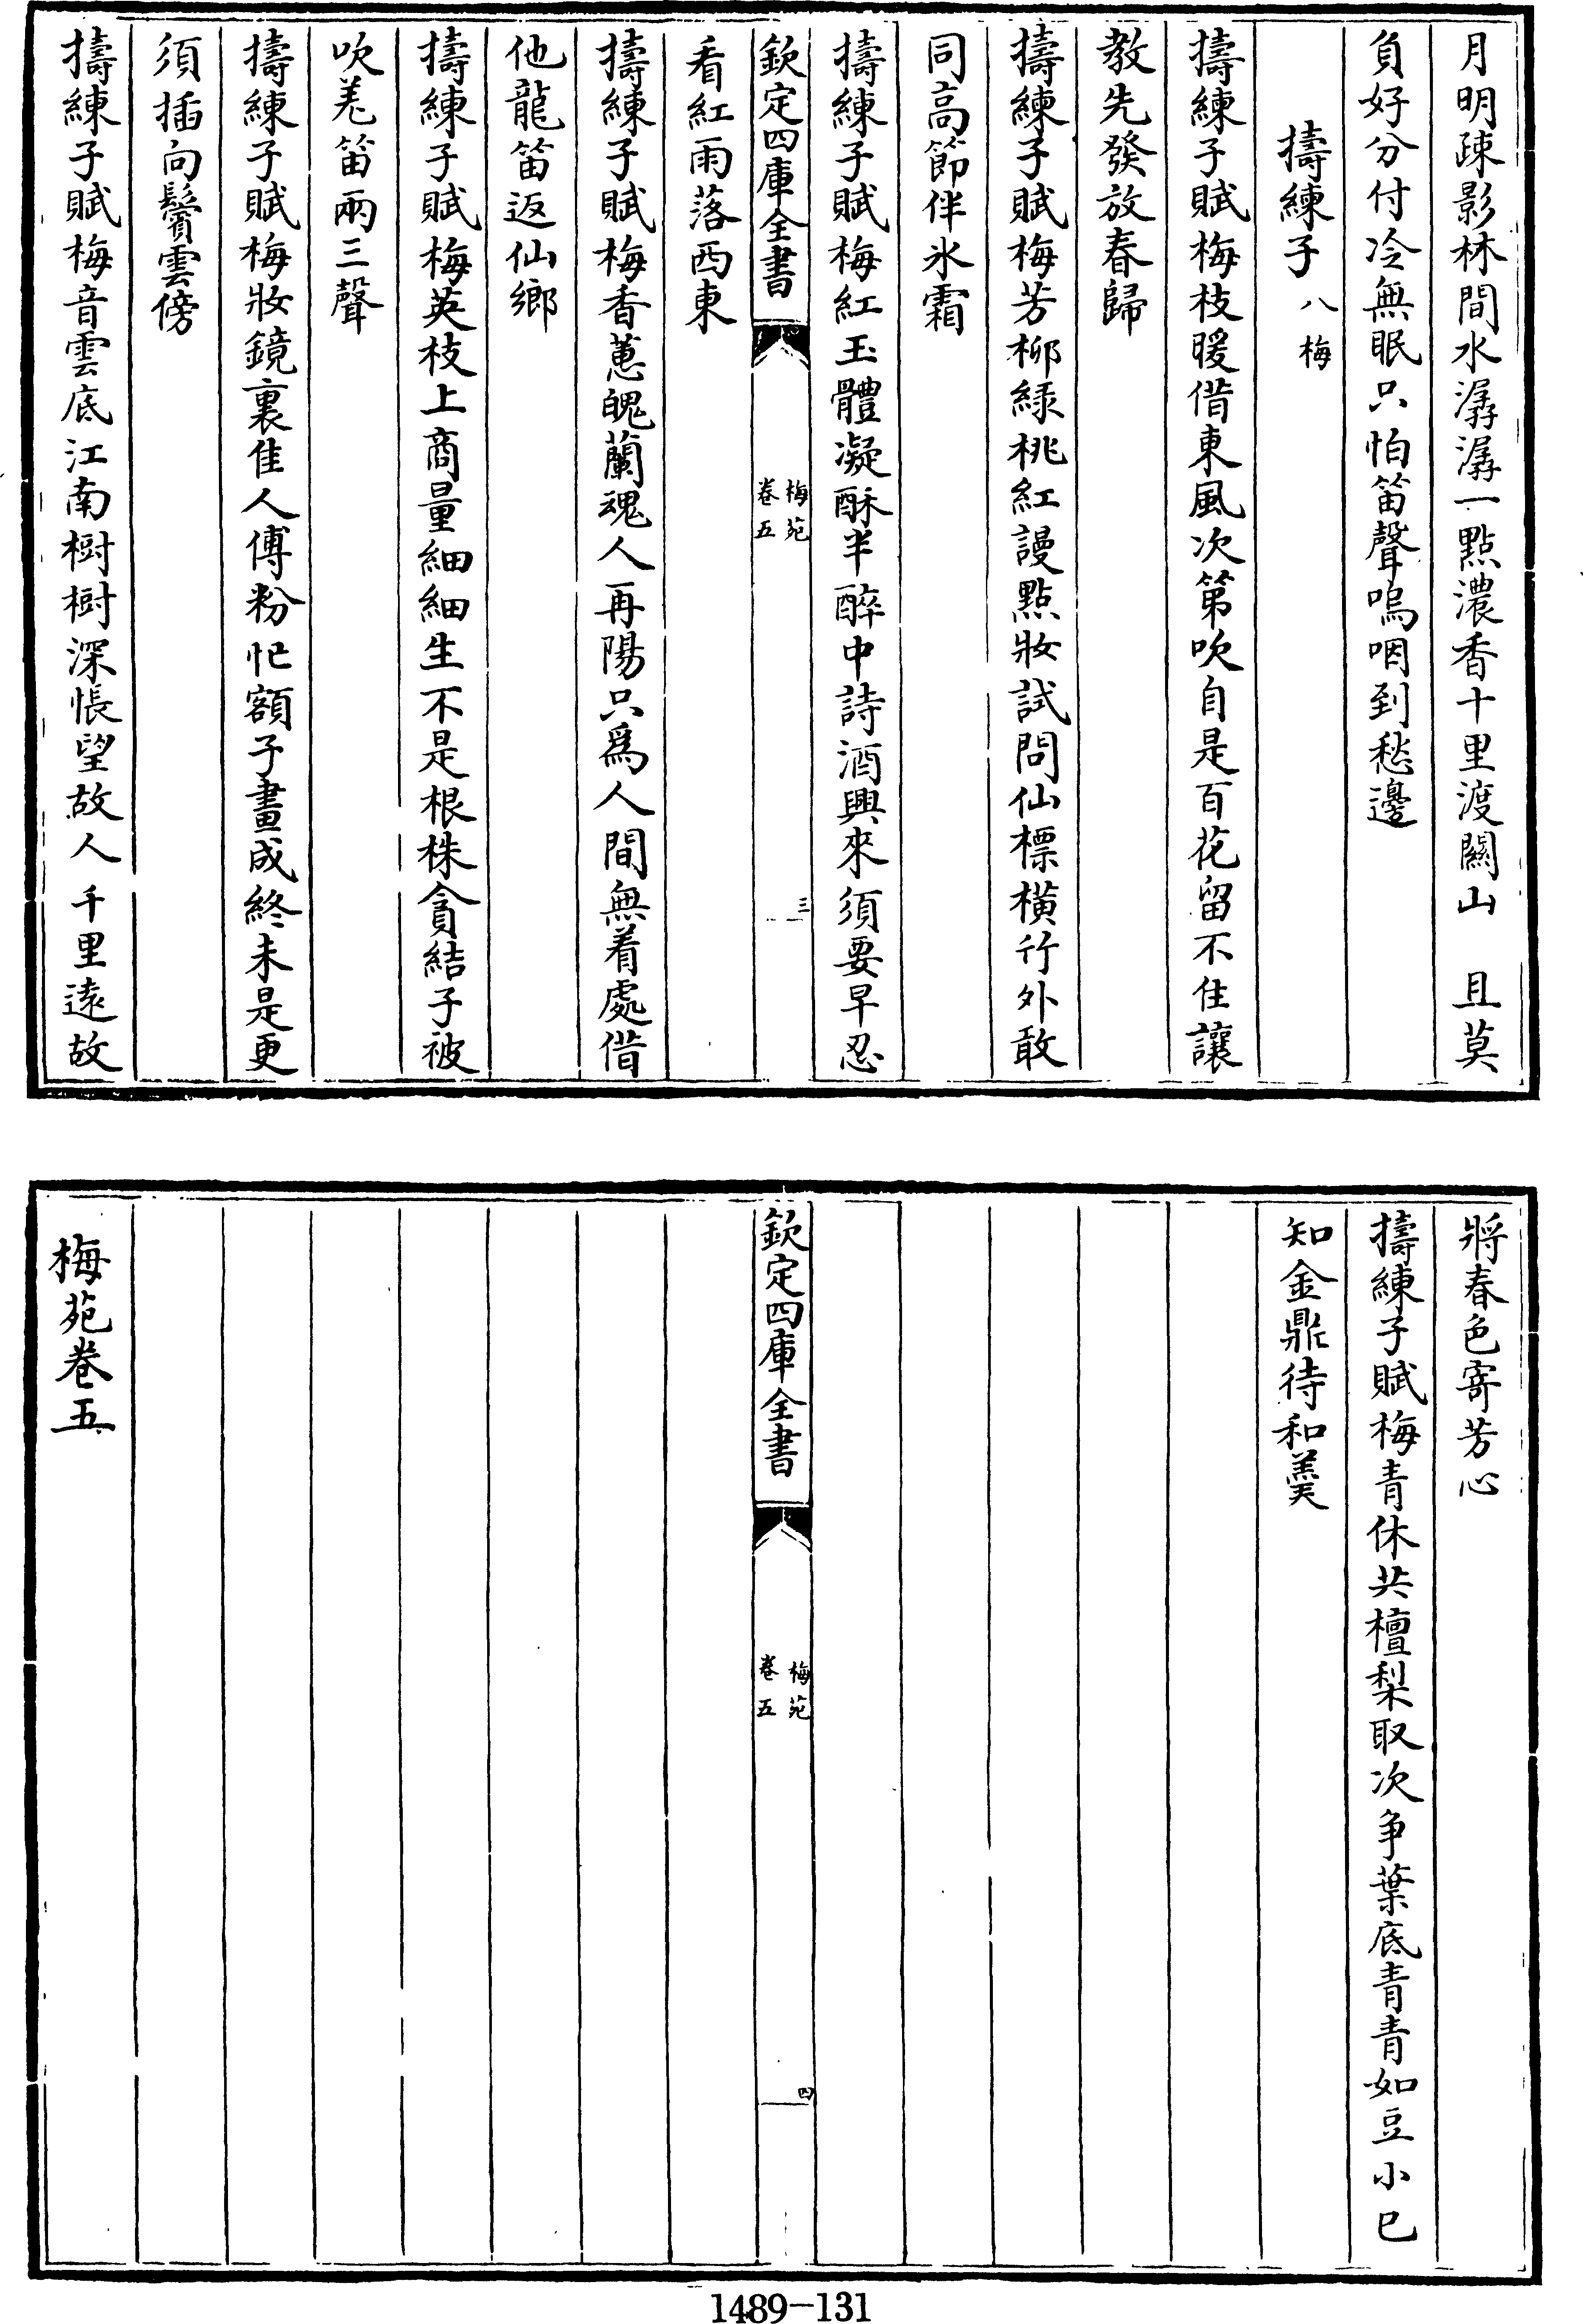 月明疎影林間水潺潺一點濃香十里渡關山　且莫
負好分付冷無眠只怕笛聲嗚咽到愁邊
擣練子　八梅
擣練子賦梅枝暖借東風次第吹自是百花留不住讓
教先發放春歸
擣練子賦梅芳柳緑桃紅謾點妝試問仙標橫竹外敢
同高節伴氷霜
擣練子賦梅紅玉體凝酥半醉中詩酒興來須要早忍
欽定四庫全書
梅苑
卷五
三
看紅雨落西東
擣練子賦梅香蕙魄蘭魂人再陽只爲人間無着處借
他龍笛返仙鄉
擣練子賦梅英枝上商量細細生不是根株貪結子被
吹羌笛兩三聲
擣練子賦梅妝鏡裏佳人傅粉忙額子畫成終未是更
須插向鬢雲傍
擣練子賦梅音雲底江南樹樹深悵望故人千里遠故
將春色寄芳心
擣練子賦梅青休共楂梨取次爭葉底青青如豆小已
知金鼎待和羮
欽定四庫全書
梅苑
卷五
四
梅苑卷五
1489-131